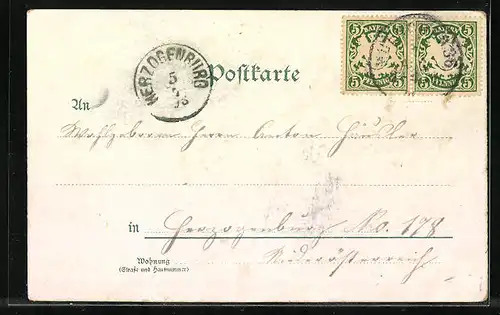 BAYERN BAYERN
5 5 5 5
PFENNIG PFENNIG
HERZOGENBURG
5
Postkarte
An
Wohlgeboren Herrn Anton
in Herzogenburg No. 178
Niederösterreich
Wohnung
(Straße und Hausnummer)